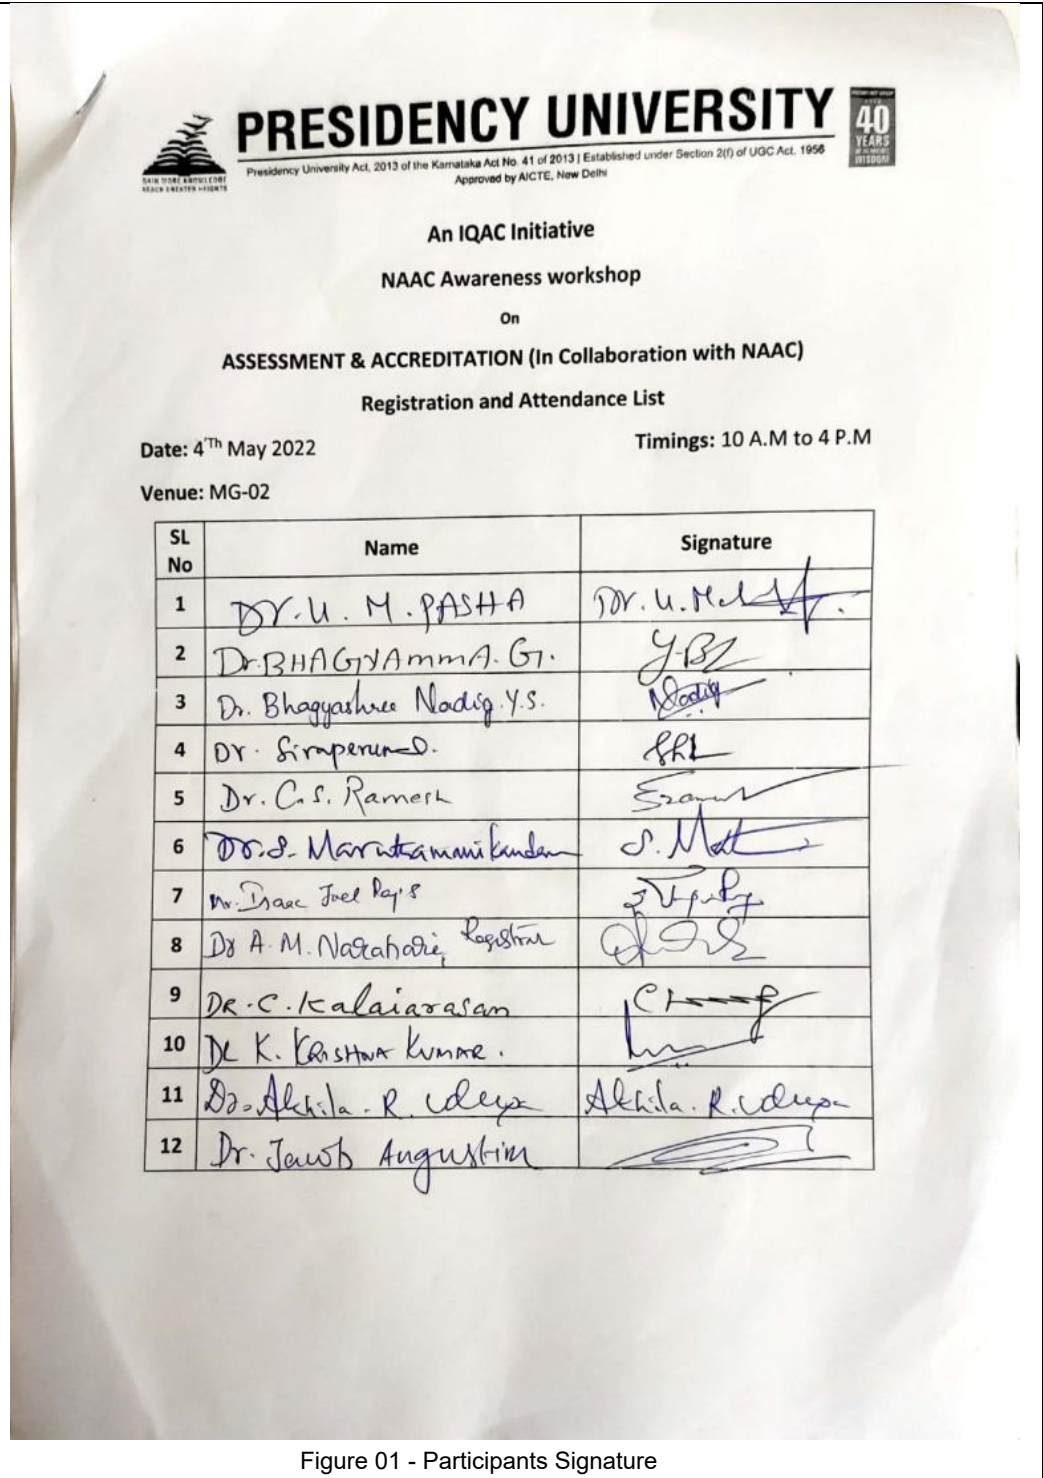 PRESIDENCY UNIVERSITY
40
YEARS
OF ACADEMIC
WISDOM
GAIN MORE KNOWLEDGE
REACH GREATER HEIGHTS
Presidency University Act, 2013 of the Karnataka Act No. 41 of 2013 | Established under Section 2(f) of UGC Act, 1956
Approved by AICTE, New Delhi
An IQAC Initiative
NAAC Awareness workshop
On
ASSESSMENT & ACCREDITATION (In Collaboration with NAAC)
Registration and Attendance List
Date: 4'Th May 2022 Timings: 10 A.M to 4 P.M
Venue: MG-02
SL No Name Signature
1 Dr. U. M. PASHA Dr. U. M
2 Dr. BHAGYAmmA. G.
3 Dr. Bhagyashree Nadig. Y.S. Nadig
4 Dr.
5 Dr. C.S. Ramesh
6 Dr. S. Maruthamanikandan S.
7 Mr. Isaac Joel Raj S
8 Dr A. M. Narahari, Registrar
9 DR. C. Kalaiarasan
10 Dr K. KRISHNA KUMAR.
11 Dr. Akhila. R. Udupa Akhila. R. Udupa
12 Dr. Jacob Augustin
Figure 01 - Participants Signature